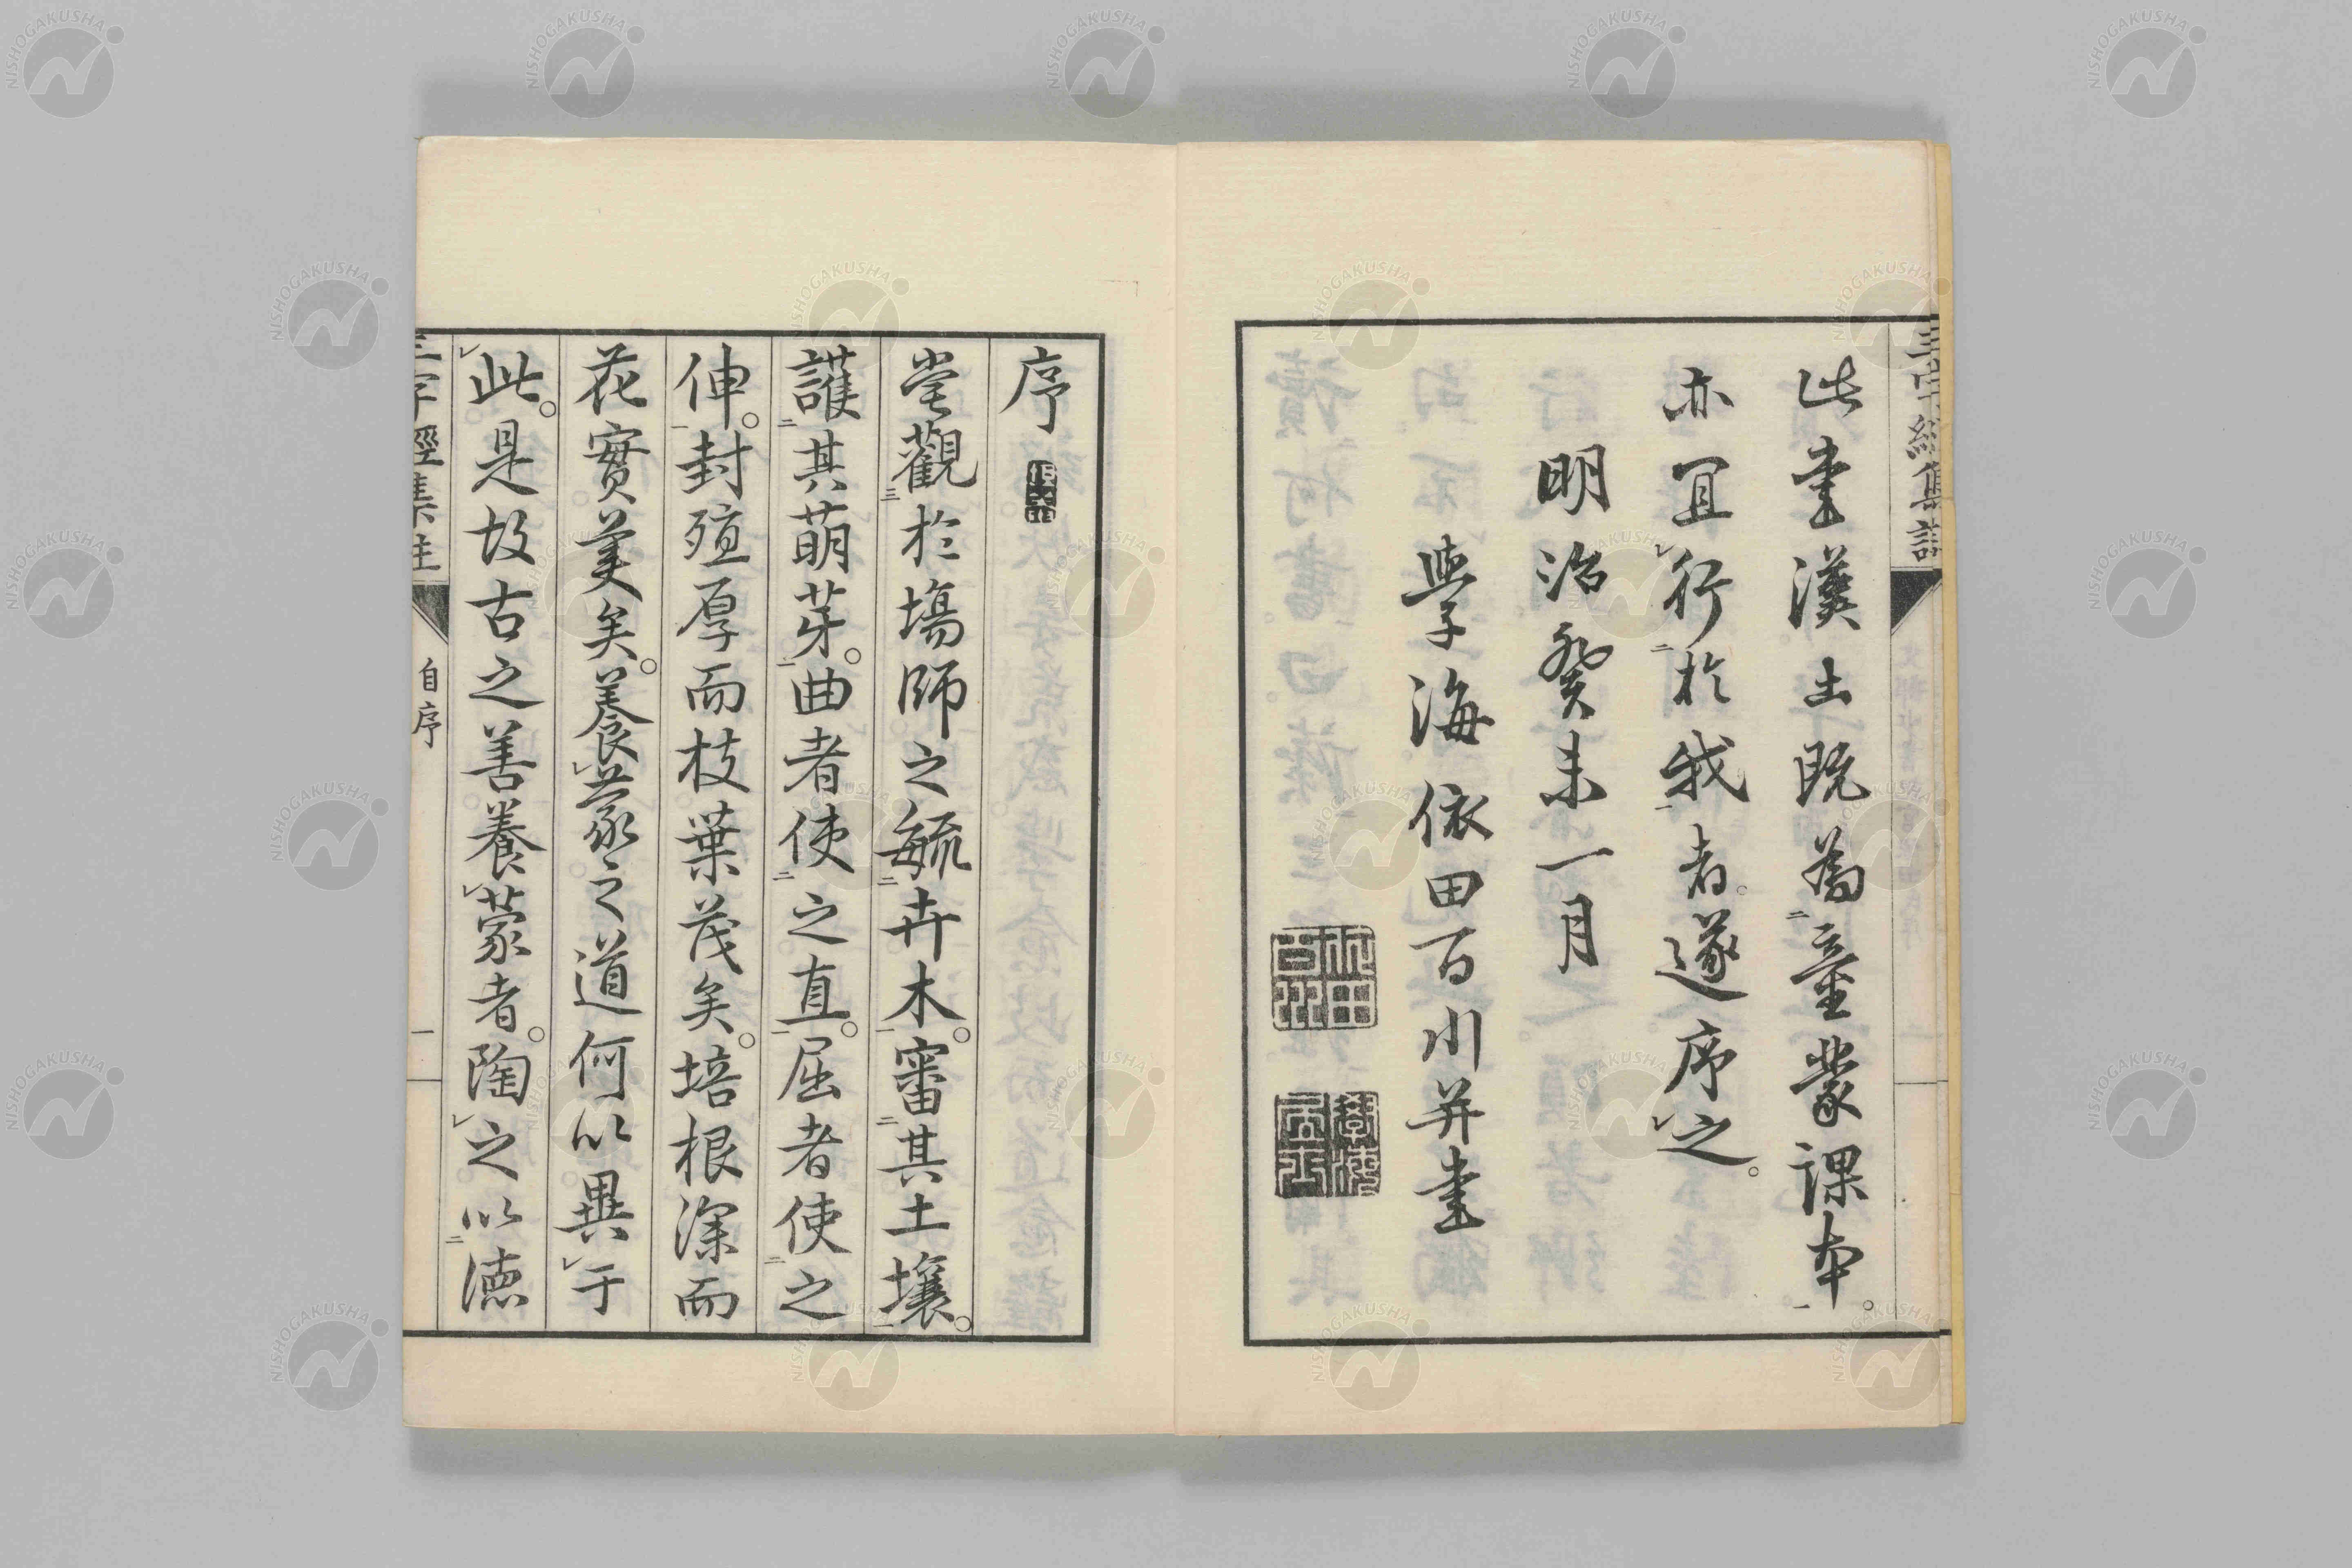 三字經集註
此書漢土既為童蒙課本。
亦宜行於我者。遂序之。
明治癸未一月
學海依田百川并書
序
嘗觀於塲師之毓卉木。審其土壤。
護其萌芽。曲者使之直。屈者使之
伸。封殖厚而枝葉茂矣。培根深而
花實美矣。養蒙之道何以異于
此。是故古之善養蒙者。陶之以德
三字經集註
自序
一
NISHOGAKUSHA